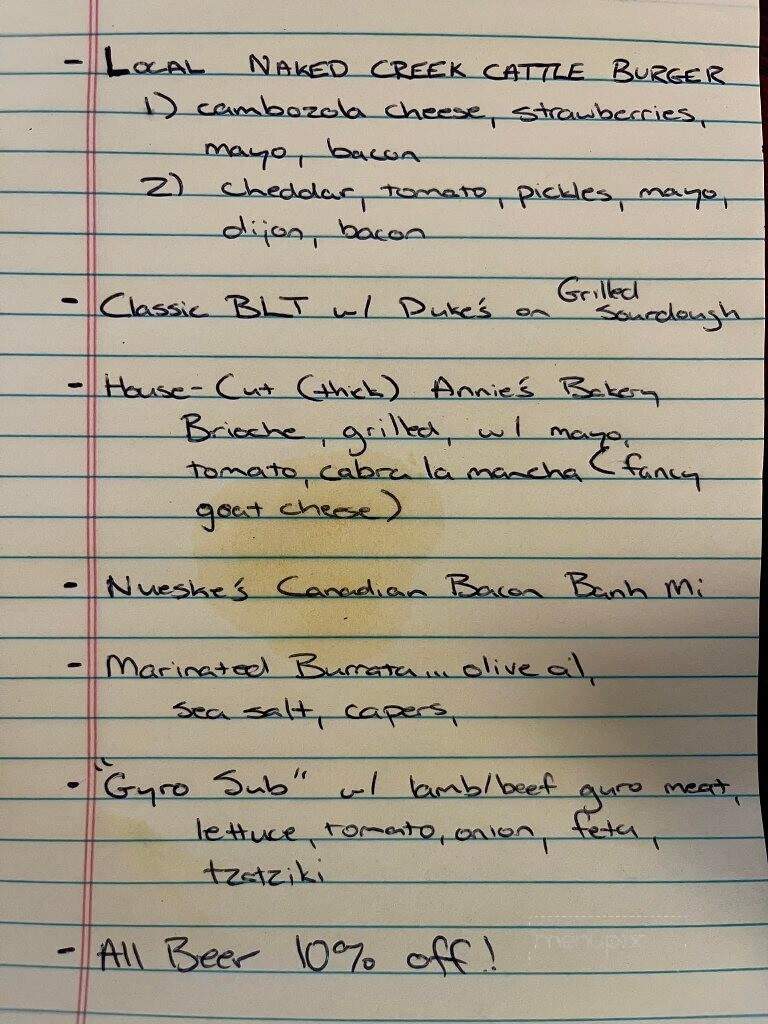 - LOCAL NAKED CREEK CATTLE BURGER
1) cambozola cheese, strawberries,
mayo, bacon
2) cheddar, tomato, pickles, mayo,
dijon, bacon
- Classic BLT w/ Duke's on Grilled Sourdough
- House-Cut (thick) Annie's Bakery
Brioche, grilled, w/ mayo,
tomato, cabra la mancha (fancy
goat cheese)
- Nueske's Canadian Bacon Banh Mi
- Marinated Burrata... olive oil,
sea salt, capers,
- "Gyro Sub" w/ lamb/beef guro meat,
lettuce, tomato, onion, feta,
tzatziki
- All Beer 10% off!
menupix